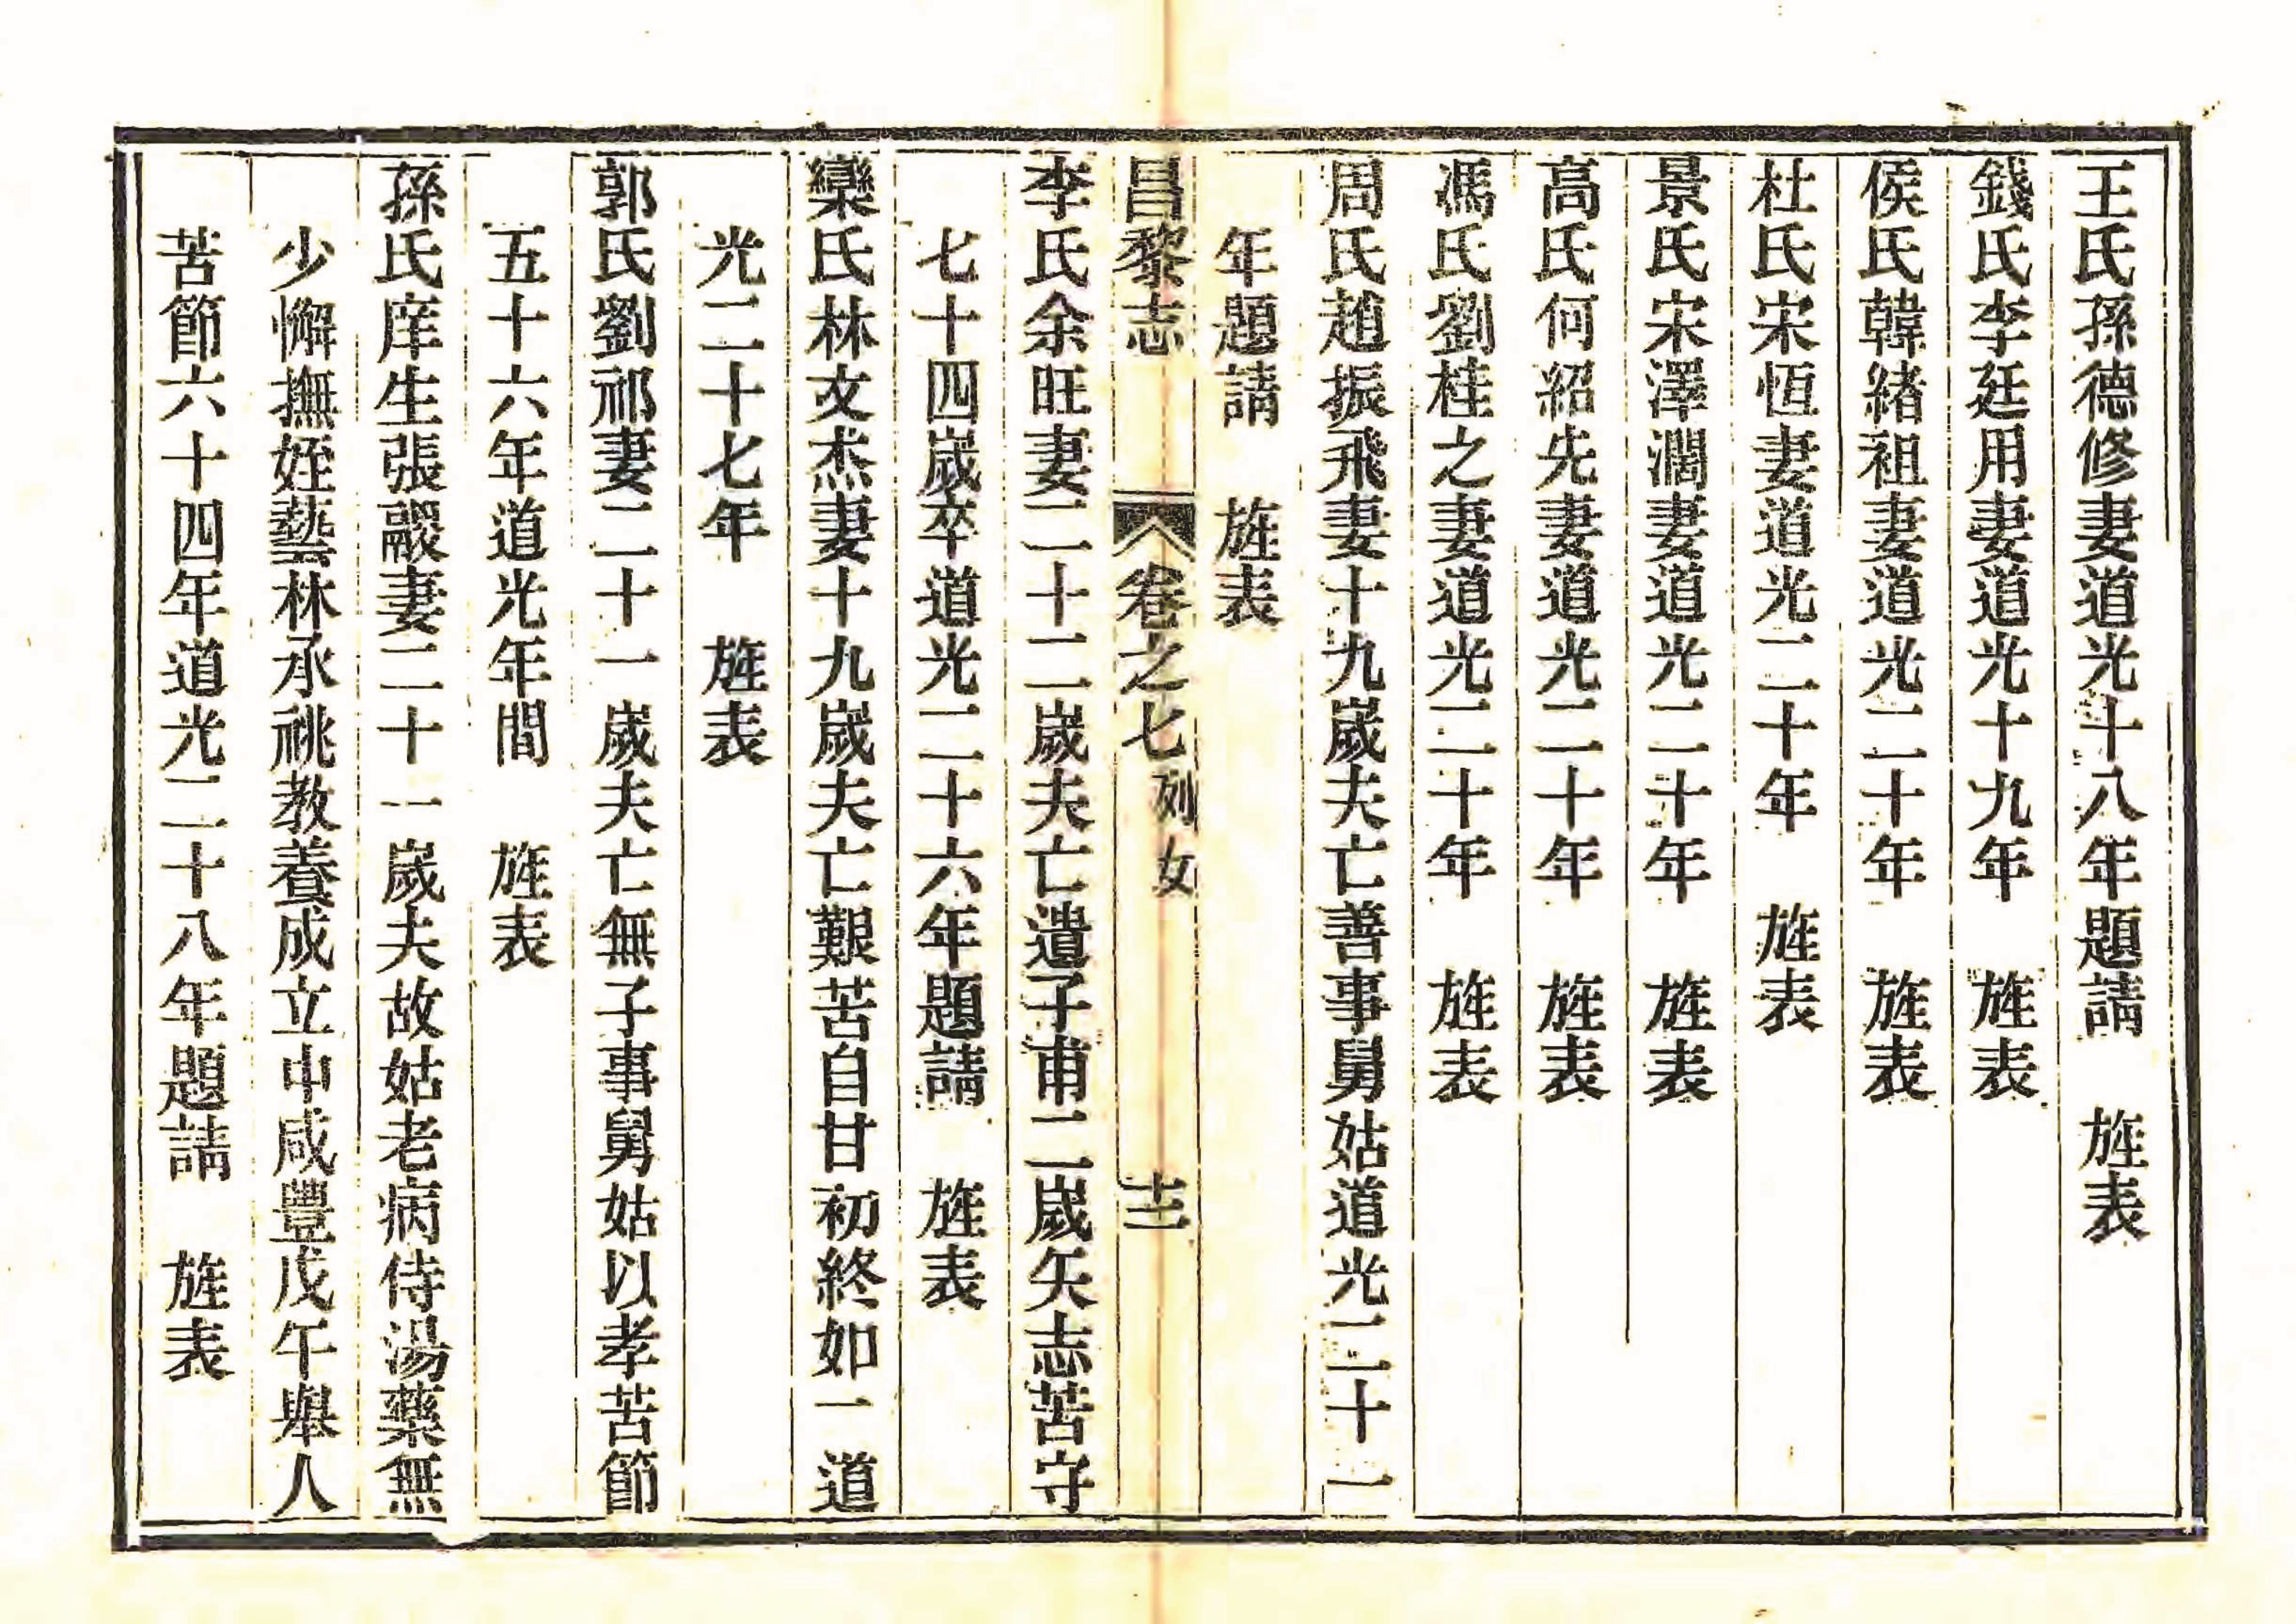 王氏孫德修妻道光十八年題請　旌表
錢氏李廷用妻道光十九年　旌表
侯氏韓緒祖妻道光二十年　旌表
杜氏宋恒妻道光二十年　旌表
景氏宋澤濶妻道光二十年　旌表
高氏何紹先妻道光二十年　旌表
馮氏劉桂之妻道光二十年　旌表
周氏趙振飛妻十九歲夫亡善事舅姑道光二十一
年題請　旌表
昌黎志　卷之七列女　十二
李氏余旺妻二十二歲夫亡遺子甫二歲矢志苦守
七十四歲卒道光二十六年題請　旌表
欒氏林文杰妻十九歲夫亡艱苦自甘初終如一道
光二十七年　旌表
郭氏劉祁妻二十一歲夫亡無子事舅姑以孝苦節
五十六年道光年間　旌表
孫氏庠生張妻二十一歲夫故姑老病侍湯藥無
少懈撫姪藝林承祧教養成立中咸豐戊午舉人
苦節六十四年道光二十八年題請　旌表